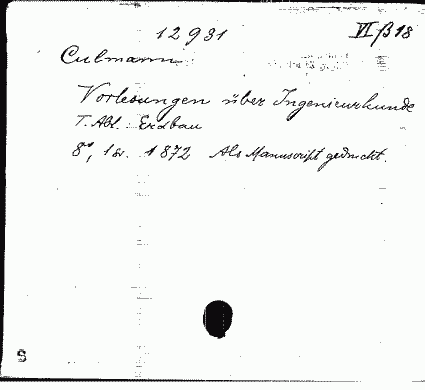 12931 VI β 18
Culmann
Vorlesungen über Ingenieurkunde
I. Abt. Erdbau
8°, 1 Br. 1872 Als Manuscript gedruckt.
S